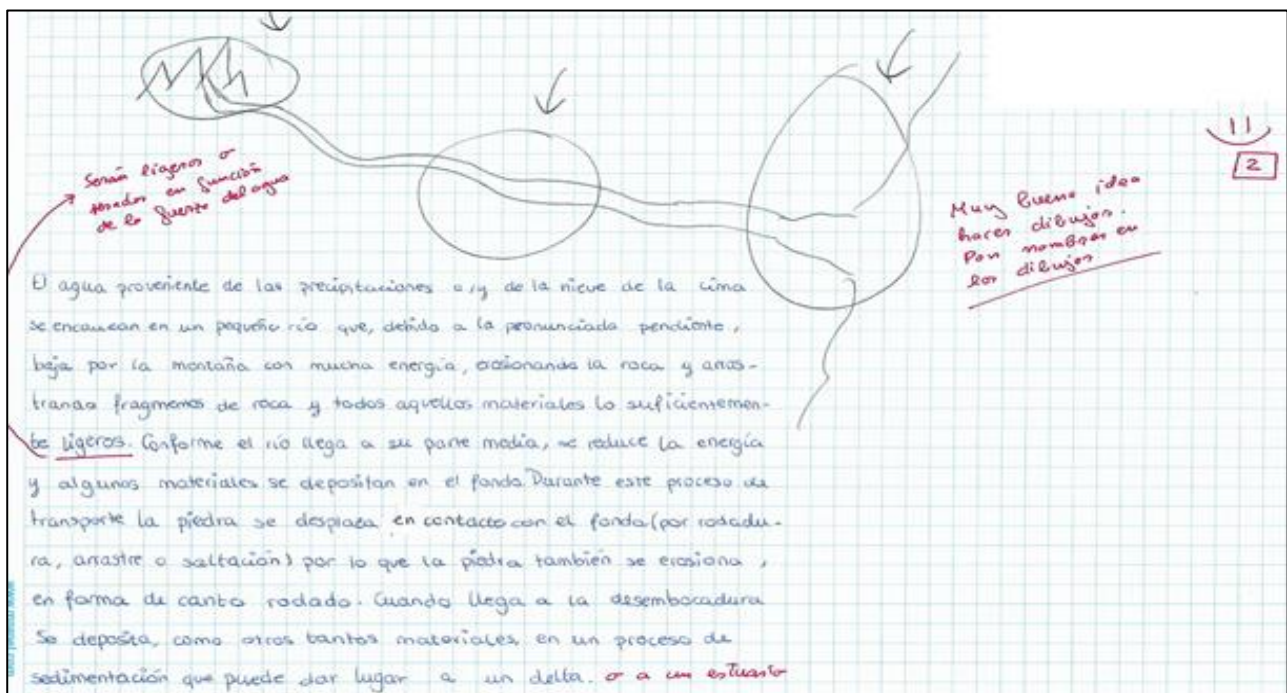 Serán ligeros o
pesados en función
de la fuerza del agua
Muy buena idea
hacer dibujos.
Pon nombres en
los dibujos
2
El agua proveniente de las precipitaciones o/y de la nieve de la cima
se encaucan en un pequeño río que, debido a la pronunciada pendiente,
baja por la montaña con mucha energía, erosionando la roca y arras-
trando fragmenos de roca y todos aquellos materiales lo suficientemen-
te ligeros. Conforme el río llega a su parte media, se reduce la energía
y algunos materiales se depositan en el fondo. Durante este proceso de
transporte la piedra se desplaza en contacto con el fondo (por rodadu-
ra, arrastre o saltación) por lo que la piedra también se erosiona,
en forma de canto rodado. Cuando llega a la desembocadura
se deposita, como otros tantos materiales, en un proceso de
sedimentación que puede dar lugar a un delta. o a un estuario